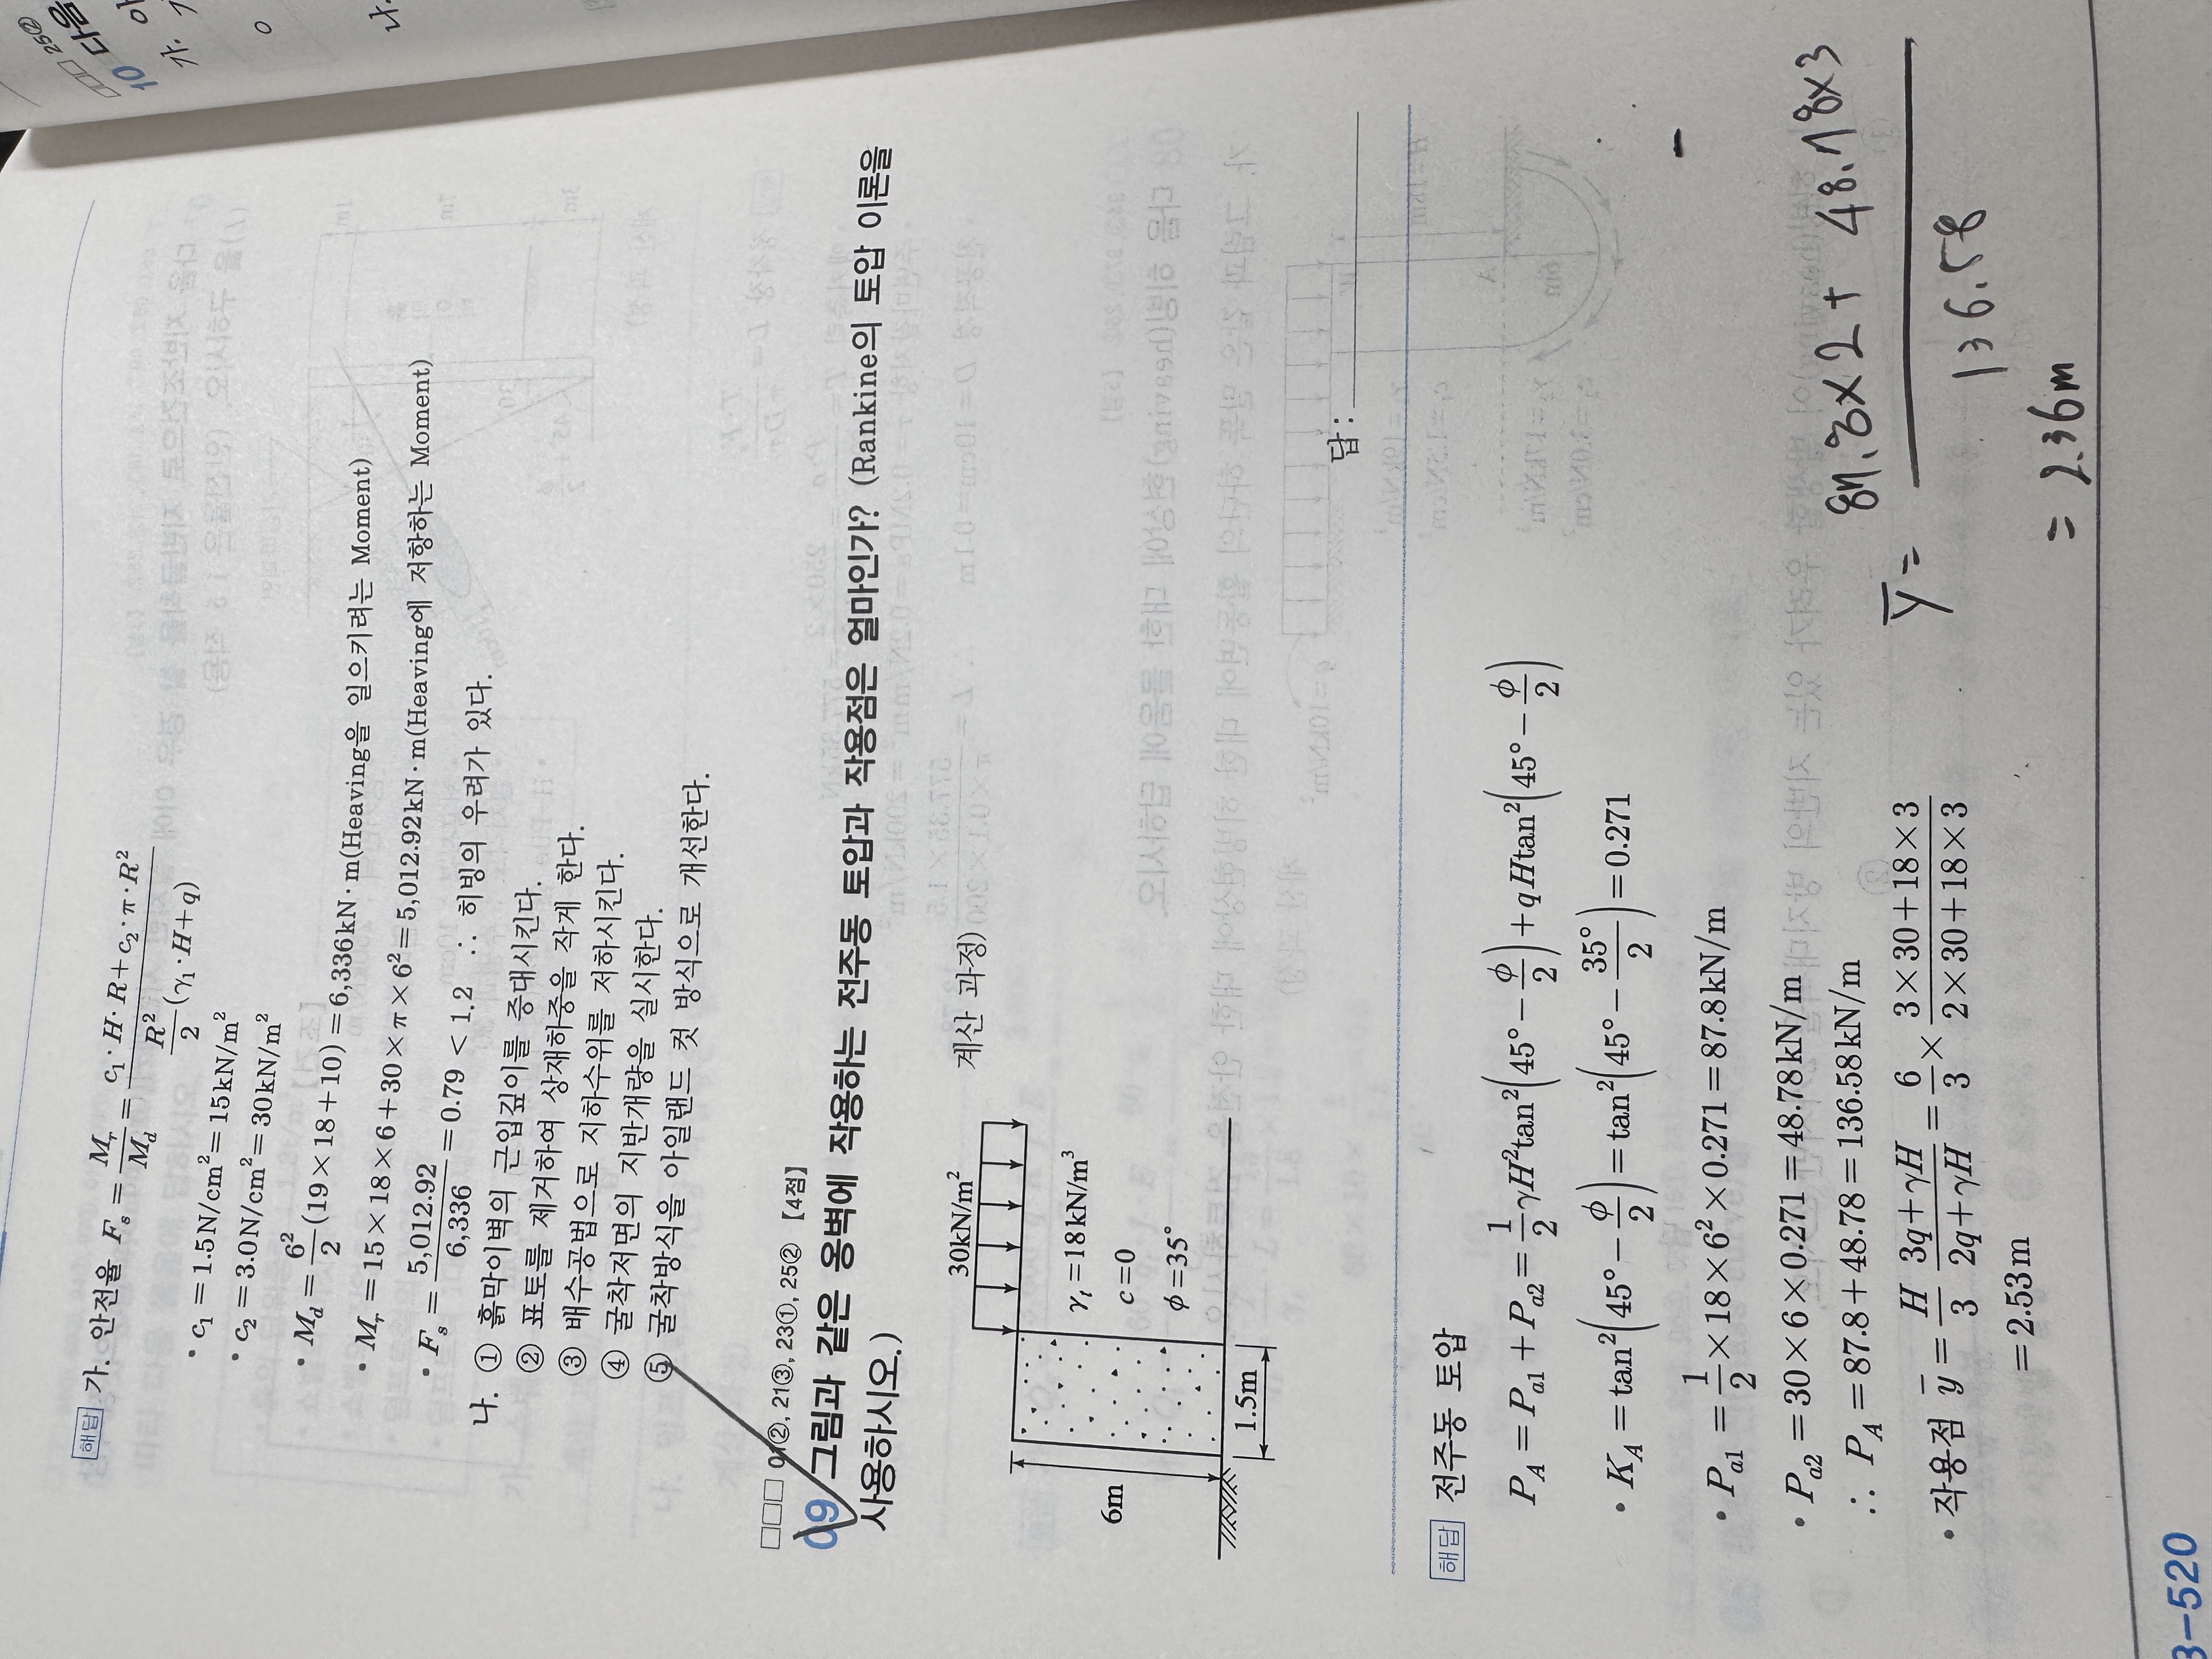 25②
10 다음
가.
나.
해답 가. 안전율 F_s = M_r / M_d = (c₁·H·R+c₂·π·R²) / (R²/2 (γ₁·H+q))
• c₁ = 1.5N/cm² = 15kN/m²
• c₂ = 3.0N/cm² = 30kN/m²
• M_d = 6²/2 (19×18+10) = 6,336kN·m(Heaving을 일으키려는 Moment)
• M_r = 15×18×6+30×π×6² = 5,012.92kN·m(Heaving에 저항하는 Moment)
• F_s = 5,012.92 / 6,336 = 0.79 < 1.2 ∴ 히빙의 우려가 있다.
나. ① 흙막이벽의 근입깊이를 증대시킨다.
② 표토를 제거하여 상재하중을 작게 한다.
③ 배수공법으로 지하수위를 저하시킨다.
④ 굴착저면의 지반개량을 실시한다.
⑤ 굴착방식을 아일랜드 컷 방식으로 개선한다.
②, 21③, 23①, 25② 【4점】
09 그림과 같은 옹벽에 작용하는 전주동 토압과 작용점은 얼마인가? (Rankine의 토압 이론을
사용하시오.)
계산 과정)
30kN/m²
γ_t = 18kN/m³
c = 0
φ = 35°
6m
1.5m
답 :
해답 전주동 토압
P_A = P_a1 + P_a2 = 1/2 γH²tan²(45° − φ/2) + qHtan²(45° − φ/2)
• K_A = tan²(45° − φ/2) = tan²(45° − 35°/2) = 0.271
• P_a1 = 1/2 × 18 × 6² × 0.271 = 87.8kN/m
• P_a2 = 30 × 6 × 0.271 = 48.78kN/m
∴ P_A = 87.8 + 48.78 = 136.58kN/m
• 작용점 ȳ = H/3 (3q+γH)/(2q+γH) = 6/3 × (3×30+18×3)/(2×30+18×3)
= 2.53m
ȳ = (87.8×2 + 48.78×3) / 136.58
= 2.36m
3-520